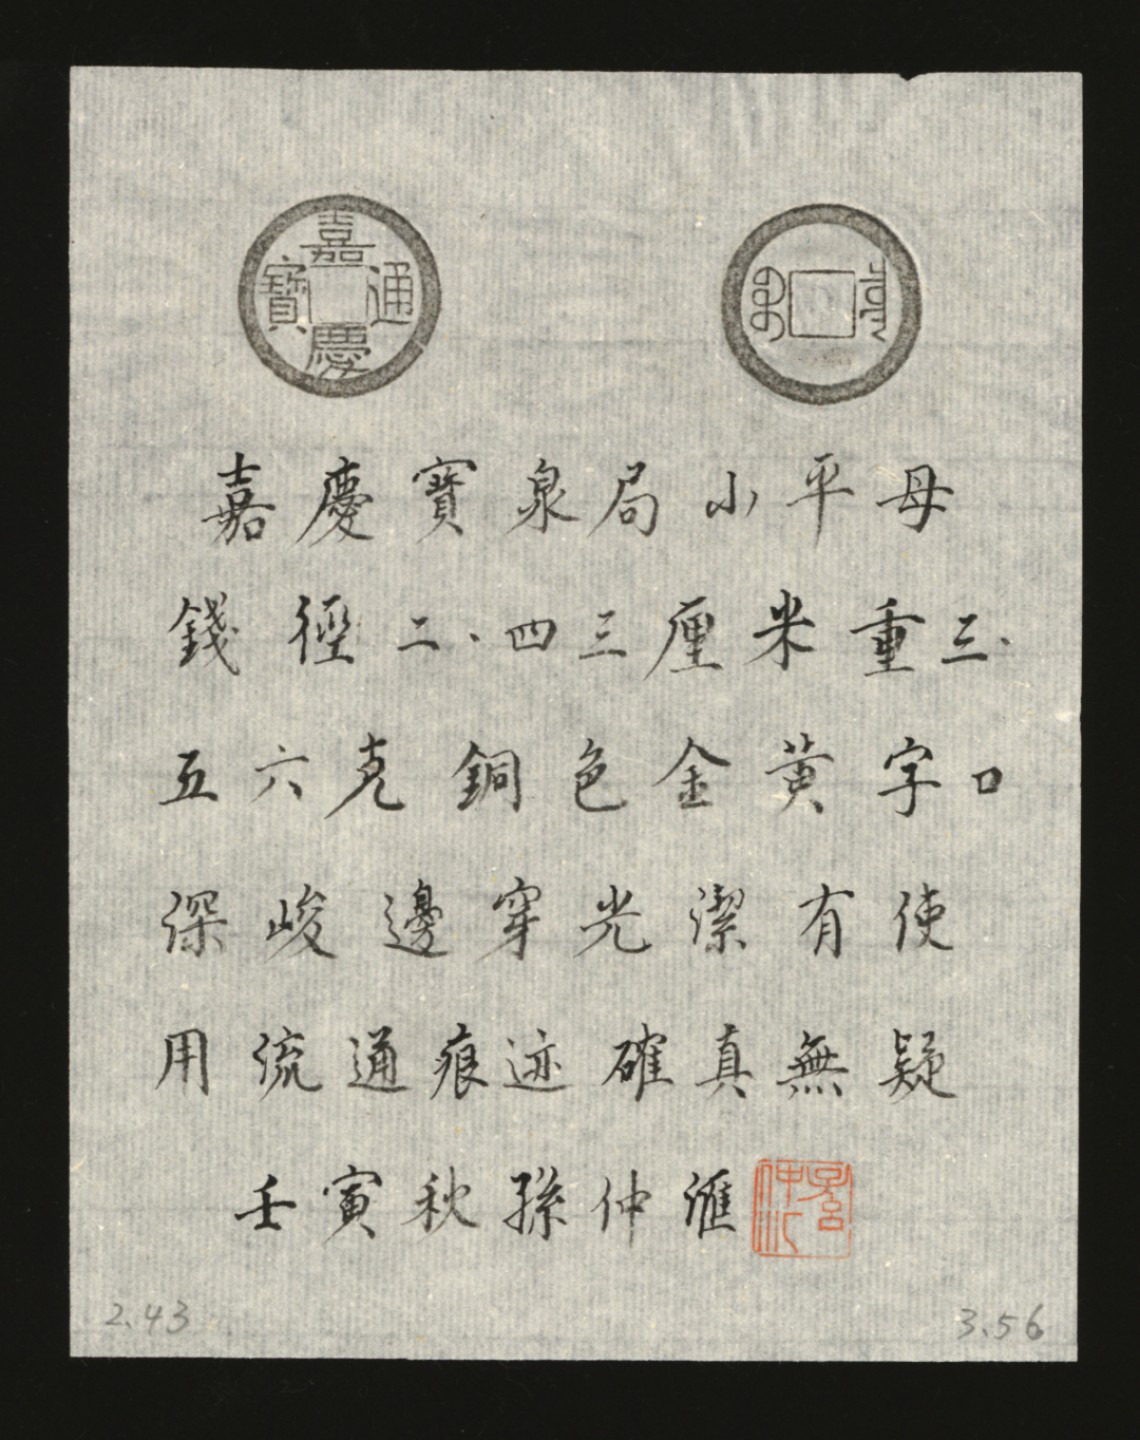 嘉慶通寶
嘉慶寶泉局小平母
錢徑二.四三厘米重三.
五六克銅色金黃字口
深峻邊穿光潔有使
用流通痕迹確真無疑
壬寅秋孫仲滙
2.43
3.56